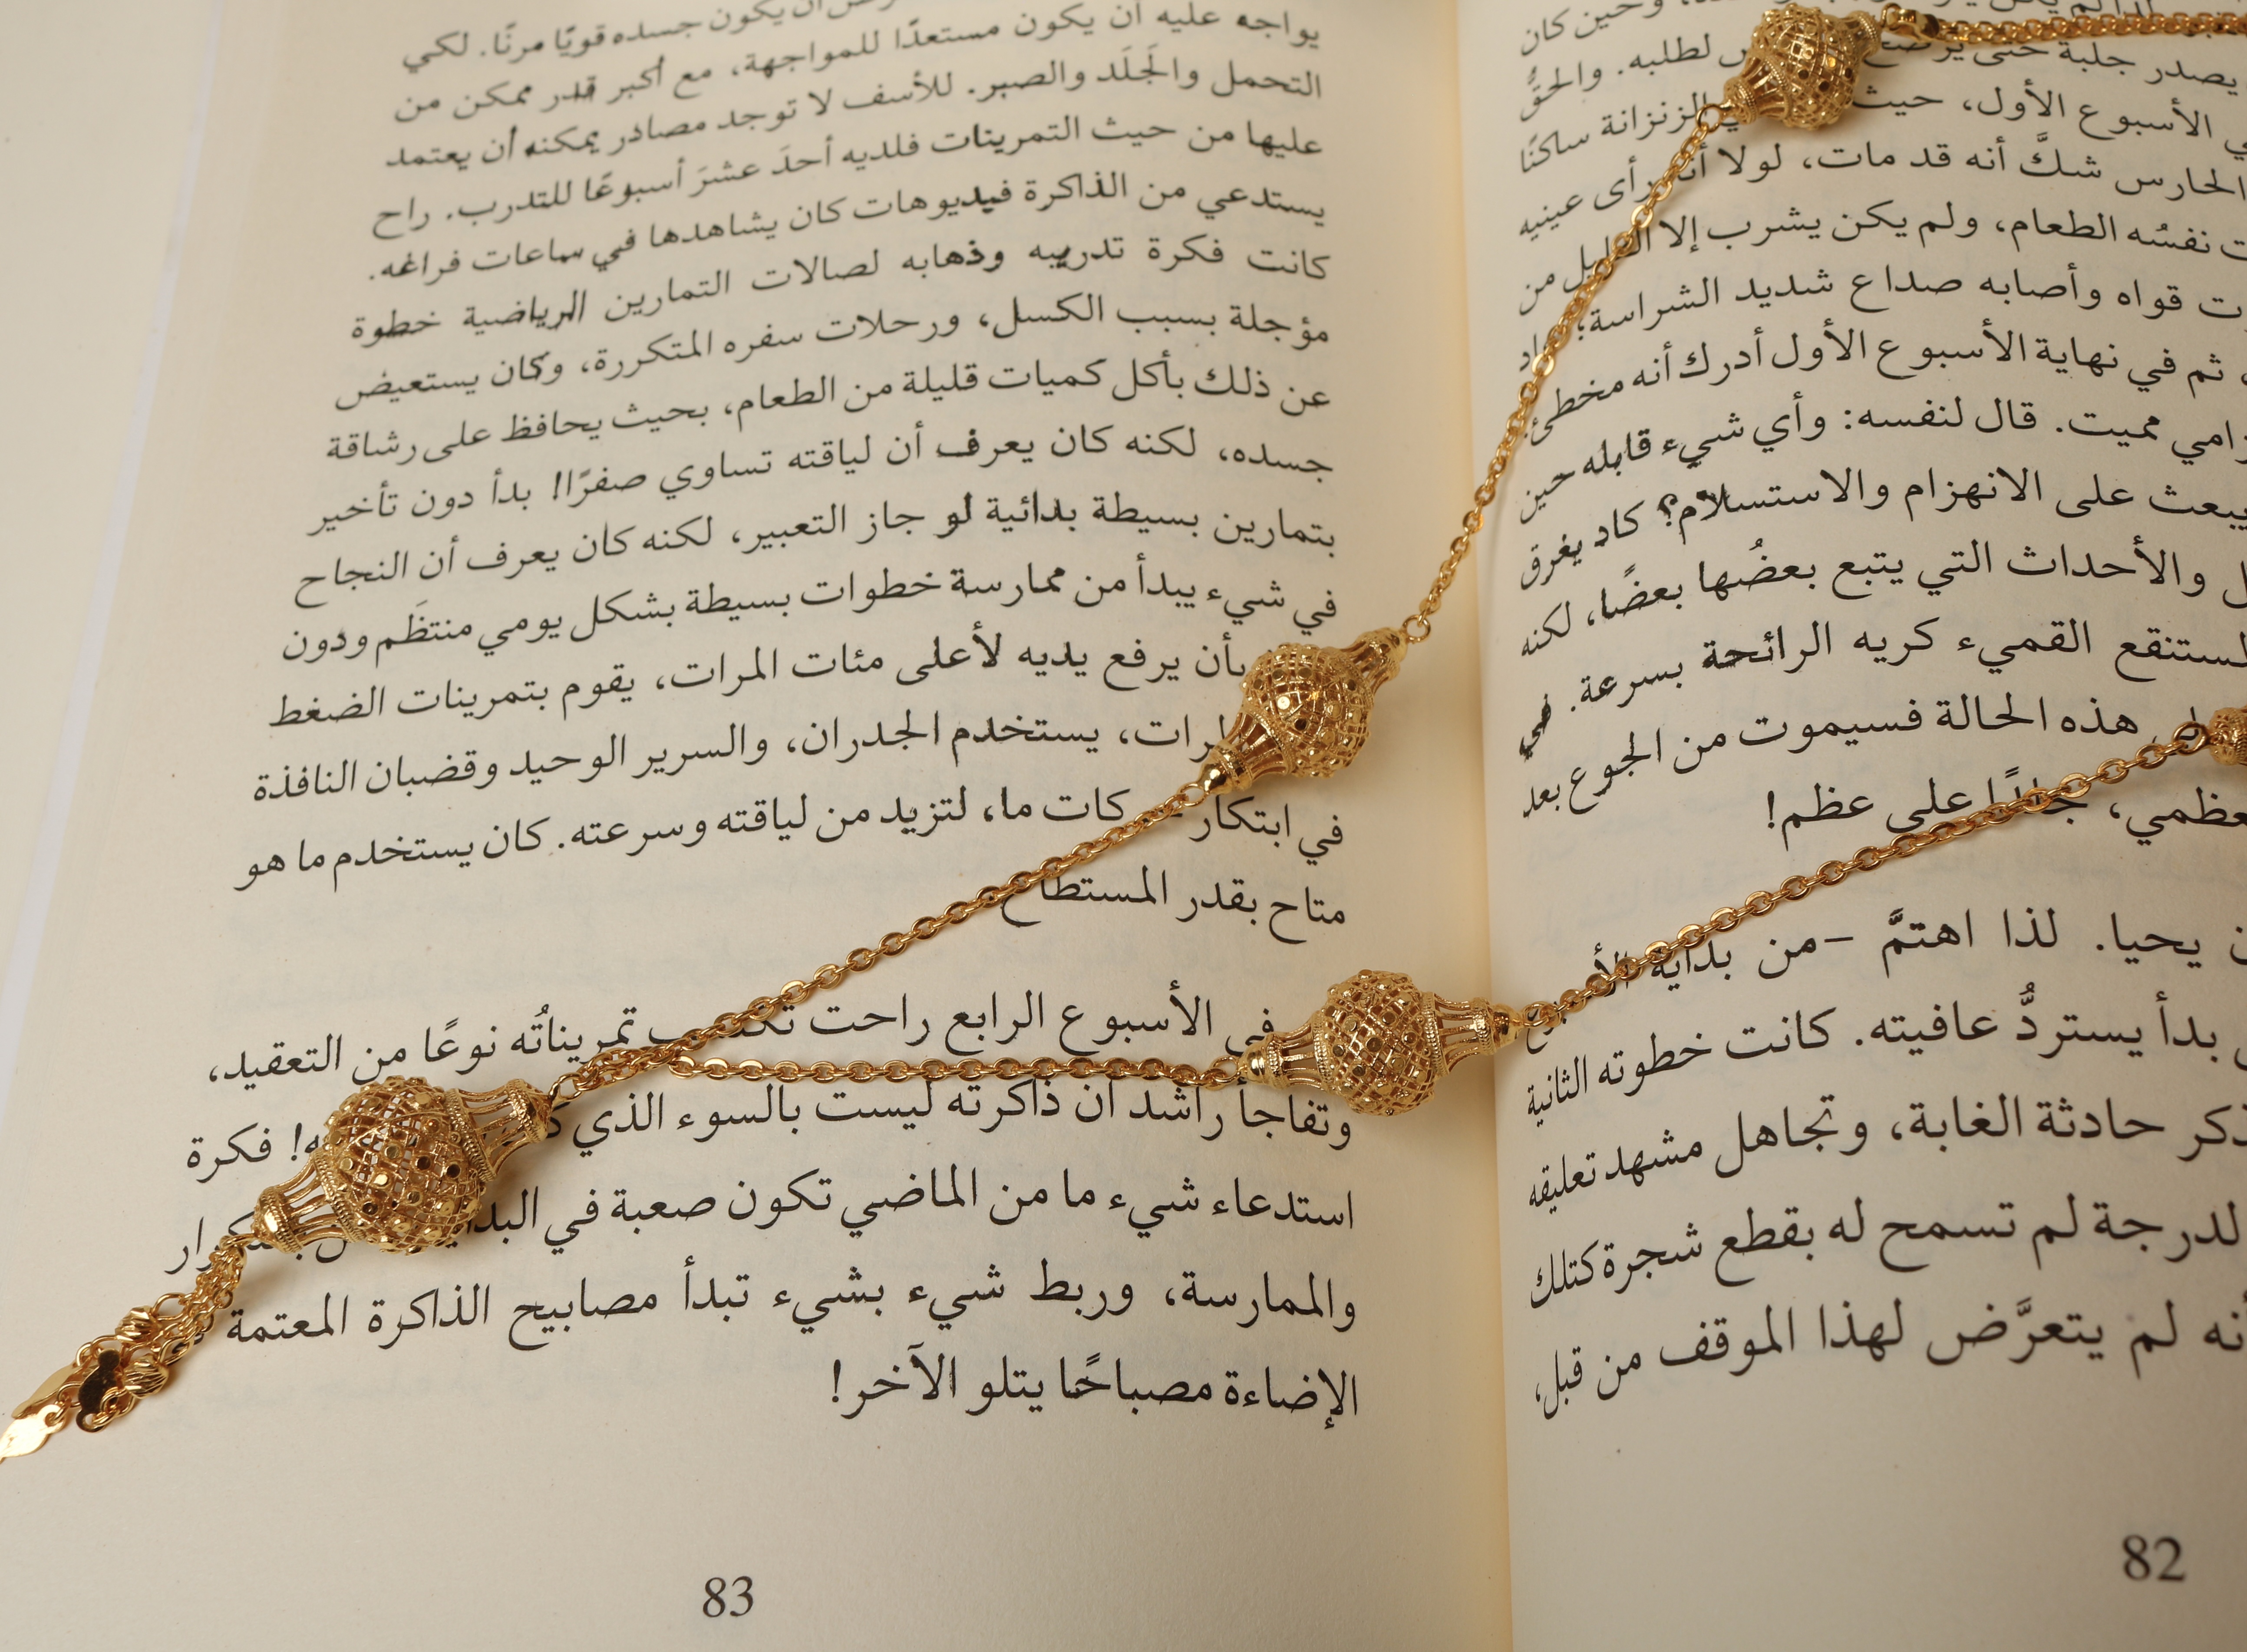 وحين كان
يصدر جلبة حتى لطلبه. والحقُّ
الأسبوع الأول، حيث الزنزانة ساكنًا
الحارس شكَّ أنه قد مات، لولا أنه رأى عينيه
نفسُه الطعام، ولم يكن يشرب إلا القليل من
قواه وأصابه صداع شديد الشراسة؛
ثم في نهاية الأسبوع الأول أدرك أنه مخطئ.
مميت. قال لنفسه: وأي شيء قابله حين
يبعث على الانهزام والاستسلام؟ كاد يغرق
والأحداث التي يتبع بعضُها بعضًا، لكنه
القميء كريه الرائحة بسرعة. في
هذه الحالة فسيموت من الجوع بعد
جلدًا على عظم!
يحيا. لذا اهتمَّ -من بداية
بدأ يستردُّ عافيته. كانت خطوته الثانية
حادثة الغابة، وتجاهل مشهد تعليقه
لدرجة لم تسمح له بقطع شجرة كتلك
لم يتعرَّض لهذا الموقف من قبل،
82
يكون جسده قويًا مرنًا. لكي
يواجه عليه أن يكون مستعدًا للمواجهة، مع أكبر قدر ممكن من
التحمل والجَلَد والصبر. للأسف لا توجد مصادر يمكنه أن يعتمد
عليها من حيث التمرينات فلديه أحدَ عشرَ أسبوعًا للتدرب. راح
يستدعي من الذاكرة فيديوهات كان يشاهدها في ساعات فراغه.
كانت فكرة تدريبه وذهابه لصالات التمارين الرياضية خطوة
مؤجلة بسبب الكسل، ورحلات سفره المتكررة، وكان يستعيض
عن ذلك بأكل كميات قليلة من الطعام، بحيث يحافظ على رشاقة
جسده، لكنه كان يعرف أن لياقته تساوي صفرًا! بدأ دون تأخير
بتمارين بسيطة بدائية لو جاز التعبير، لكنه كان يعرف أن النجاح
في شيء يبدأ من ممارسة خطوات بسيطة بشكل يومي منتظَم ودون
بأن يرفع يديه لأعلى مئات المرات، يقوم بتمرينات الضغط
يستخدم الجدران، والسرير الوحيد وقضبان النافذة
في ابتكار ما، لتزيد من لياقته وسرعته. كان يستخدم ما هو
متاح بقدر المستطاع
في الأسبوع الرابع راحت تمريناتُه نوعًا من التعقيد،
وتفاجأ راشد أن ذاكرته ليست بالسوء الذي فكرة
استدعاء شيء ما من الماضي تكون صعبة في
والممارسة، وربط شيء بشيء تبدأ مصابيح الذاكرة المعتمة
الإضاءة مصباحًا يتلو الآخر!
83